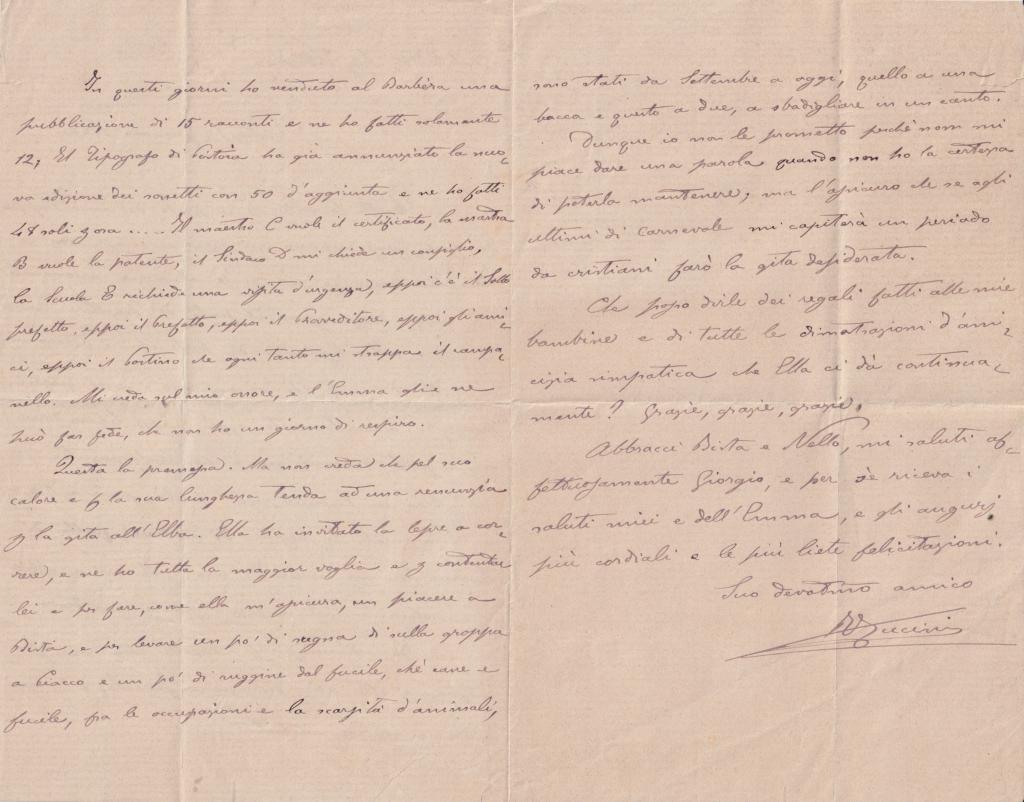 In questi giorni ho venduto al Barbèra una
pubblicazione di 15 racconti e ne ho fatti solamente
12; El Tipografo di Pistoia ha già annunziato la nuo-
va edizione dei sonetti con 50 d'aggiunta e ne ho fatti
48 soli zona ..... Il maestro C vuole il certificato, la maestra
B vuole la patente, il Sindaco D mi chiede un consiglio,
la Scuola E richiede una visita d'urgenza, eppoi c'è il Sotto
prefetto, eppoi il Prefetto, eppoi il Provveditore, eppoi gli ami-
ci, eppoi il Postino che ogni tanto mi strappa il campa-
nello. Mi creda sul mio onore, e l'Emma gliene
può far fede, che non ho un giorno di respiro.
Questa la premessa. Ma non creda che pel suo
calore e p la sua lunghezza tenda ad una renunzia
p la gita all'Elba. Ella ha invitato la lepre a cor-
rere, e ne ho tutta la maggior voglia e p contentar
lei e per fare, come ella m'assicura, un piacere a
Bista, e per levare un po' di sugna di sulla groppa
a Giacco e un po' di ruggine dal fucile, chè cane e
fucile, fra le occupazioni e la scarsità d'animali,
sono stati da Settembre a oggi, quello a una
bocca e questo a due, a sbadigliare in un canto.
Dunque io non le prometto perchè non mi
piace dare una parola quando non ho la certezza
di poterla mantenere; ma l'assicuro che se agli
ultimi di Carnevale mi capiterà un periodo
da cristiani farò la gita desiderata.
Che posso dirle dei regali fatti alle mie
bambine e di tutte le dimostrazioni d'ami-
cizia simpatica che Ella ci dà continua-
mente? Grazie, grazie, grazie.
Abbracci Bista e Nello, mi saluti af-
fettuosamente Giorgio, e per sè riceva i
saluti miei e dell'Emma, e gli augurj
più cordiali e le più liete felicitazioni.
Suo devotmo amico
RFucini